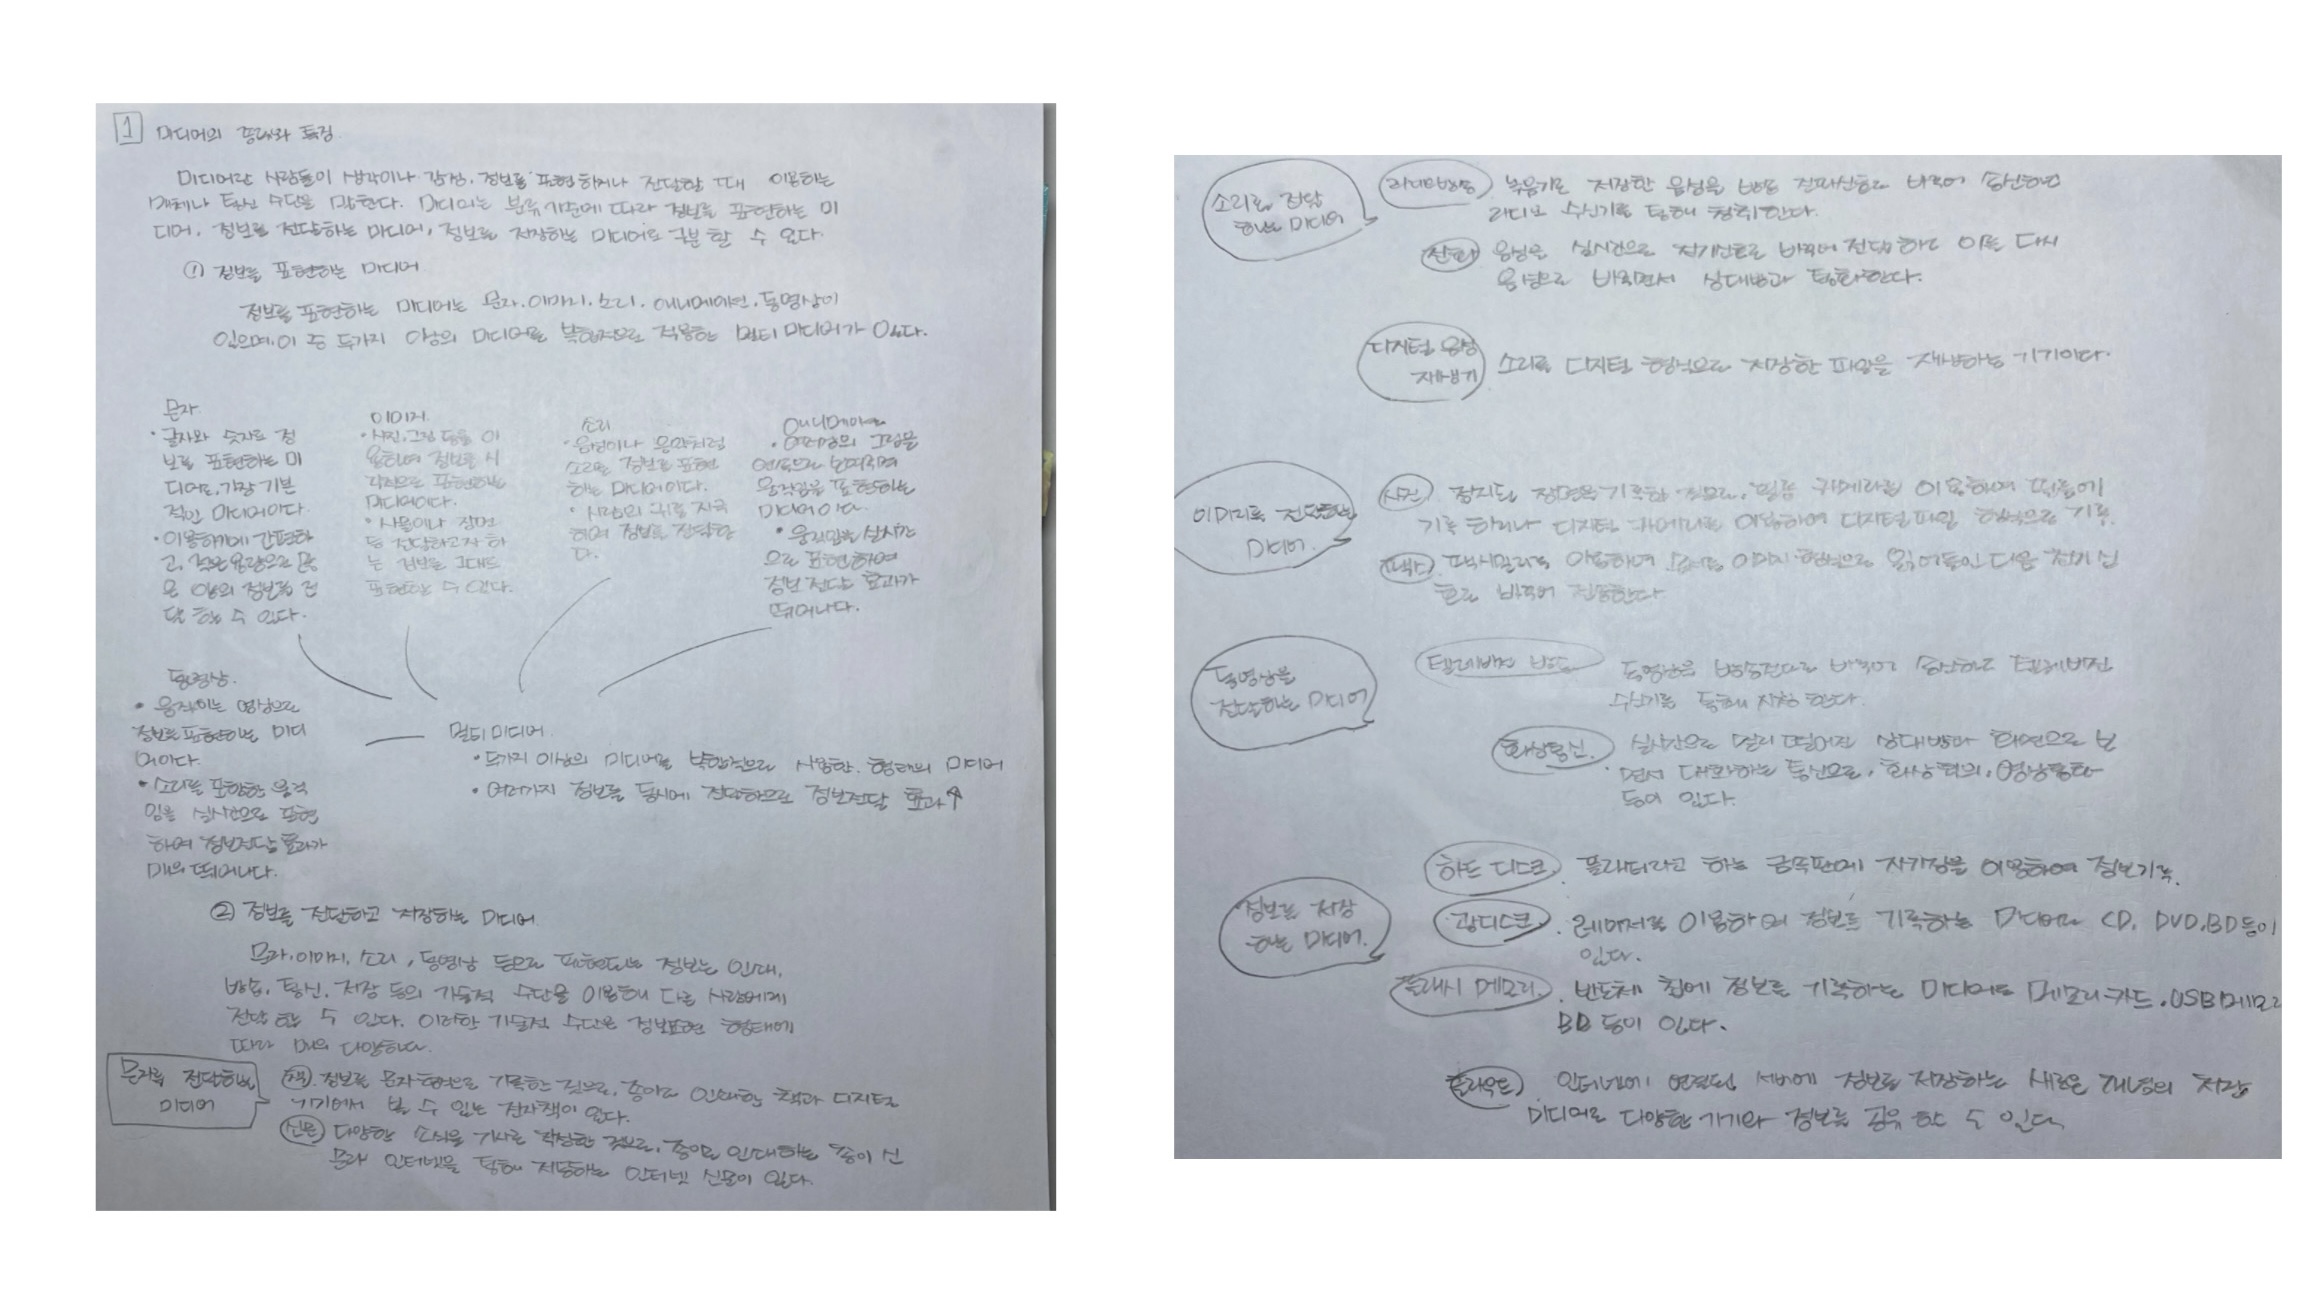 1 미디어의 종류와 특징
미디어란 사람들이 생각이나 감정, 정보를 표현하거나 전달할 때 이용하는
매체나 통신 수단을 말한다. 미디어는 분류 기준에 따라 정보를 표현하는 미
디어, 정보를 전달하는 미디어, 정보를 저장하는 미디어로 구분 할 수 있다.
① 정보를 표현하는 미디어
정보를 표현하는 미디어는 문자, 이미지, 소리, 애니메이션, 동영상이
있으며, 이 중 두가지 이상의 미디어를 복합적으로 적용하는 멀티 미디어가 있다.
문자
• 글자와 숫자로 정
보를 표현하는 미
디어로, 가장 기본
적인 미디어이다.
• 이용하기에 간편하
고, 적은 용량으로 많
은 양의 정보를 전
달 하는 수 있다.
이미지
• 사진, 그림 등을 이
용하여 정보를 시
각적으로 표현하는
미디어이다.
• 사물이나 장면
등 전달하고자 하
는 정보를 그대로
표현하는 수 있다.
소리
• 음성이나 음악처럼
소리로 정보를 표현
하는 미디어이다.
• 사람의 귀를 자극
하여 정보를 전달한
다.
애니메이션
• 여러장의 그림을
연속으로 보여주며
움직임을 표현하는
미디어이다.
• 움직임을 실시간
으로 표현하여
정보 전달 효과가
뛰어나다.
동영상
• 움직이는 영상으로
정보를 표현하는 미디
어이다.
• 소리를 포함한 움직
임을 실시간으로 표현
하여 정보전달 효과가
매우 뛰어나다.
멀티 미디어
• 두가지 이상의 미디어를 복합적으로 사용한 형태의 미디어
• 여러가지 정보를 동시에 전달하므로 정보전달 효과↑
② 정보를 전달하고 저장하는 미디어
문자, 이미지, 소리, 동영상 등으로 표현되는 정보는 인쇄,
방송, 통신, 저장 등의 기술적 수단을 이용해 다른 사람에게
전달 할 수 있다. 이러한 기술적 수단은 정보표현 형태에
따라 매우 다양하다.
문자를 전달하는
미디어
책 정보를 문자 형식으로 기록한 것으로, 종이로 인쇄한 책과 디지털
기기에서 볼 수 있는 전자책이 있다.
신문 다양한 소식을 기사로 작성한 것으로, 종이로 인쇄하는 종이 신
문과 인터넷을 통해 제공하는 인터넷 신문이 있다.
소리로 전달
하는 미디어
라디오방송 녹음기로 저장한 음성을 방송 전파신호로 바꾸어 송신하고
라디오 수신기를 통해 청취한다.
전화 음성을 실시간으로 전기신호로 바꾸어 전달하고 이를 다시
음성으로 바꾸면서 상대방과 통화한다.
디지털 음성
재생기
소리를 디지털 형식으로 저장한 파일을 재생하는 기기이다.
이미지를 전달하는
미디어.
사진 정지된 장면을 기록한 것으로, 필름 카메라를 이용하여 필름에
기록 하거나 디지털 카메라를 이용하여 디지털파일 형식으로 기록.
팩스 팩시밀리를 이용하여 문서를 이미지 형식으로 읽어들인 다음 전기 신
호로 바꾸어 전송한다.
동영상을
전달하는 미디어
텔레비전 방송 동영상을 방송전파로 바꾸어 송신하고 텔레비전
수신기를 통해 시청 한다.
화상통신 실시간으로 멀리 떨어진 상대방과 화면으로 보
면서 대화하는 통신으로, 화상 회의, 영상통화
등이 있다.
정보를 저장
하는 미디어.
하드 디스크 플래터라고 하는 금속판에 자기장을 이용하여 정보기록.
광디스크 레이저를 이용하여 정보를 기록하는 미디어로 CD, DVD, BD 등이
있다.
플래시 메모리 반도체 칩에 정보를 기록하는 미디어로 메모리 카드, USB메모리
BD 등이 있다.
클라우드 인터넷에 연결된 서버에 정보를 저장하는 새로운 개념의 저장
미디어로 다양한 기기와 정보를 공유 할 수 있다.